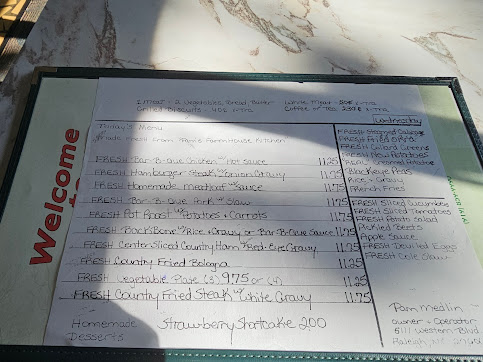 Welcome
to
1 Meat - 2 Vegetables, Bread, Butter
Grilled Biscuits - 40¢ extra
White Meat - 50¢ extra
Coffee or Tea
extra
Wednesday
Today's Menu
Made Fresh From Pam's Farmhouse Kitchen
FRESH Bar-B-Que Chicken w/ Hot Sauce 11.25
FRESH Hamburger Steak w/ Onion Gravy 11.25
FRESH Homemade Meatloaf w/ Sauce 11.75
FRESH Bar-B-Que Pork w/ Slaw 11.25
FRESH Pot Roast w/ Potatoes + Carrots 11.75
FRESH Backbone w/ Rice + Gravy or Bar-B-Que Sauce 11.25
FRESH Center-Sliced Country Ham w/ Red-Eye Gravy 11.25
FRESH Country Fried Bologna 11.25
FRESH Vegetable Plate (3) 9.75 or (4) 11.25
FRESH Country Fried Steak w/ White Gravy 11.75
Homemade Desserts
Strawberry Shortcake 2.00
FRESH Steamed Cabbage
FRESH Fried Okra
FRESH Collard Greens
FRESH New Potatoes
REAL Creamed Potatoes
Blackeye Peas
Rice + Gravy
French Fries
FRESH Sliced Cucumbers
FRESH Sliced Tomatoes
FRESH Potato Salad
Pickled Beets
Apple Sauce
FRESH Deviled Eggs
FRESH Cole Slaw
Pam Medlin
owner + Operator
5111 Western Blvd
Raleigh,